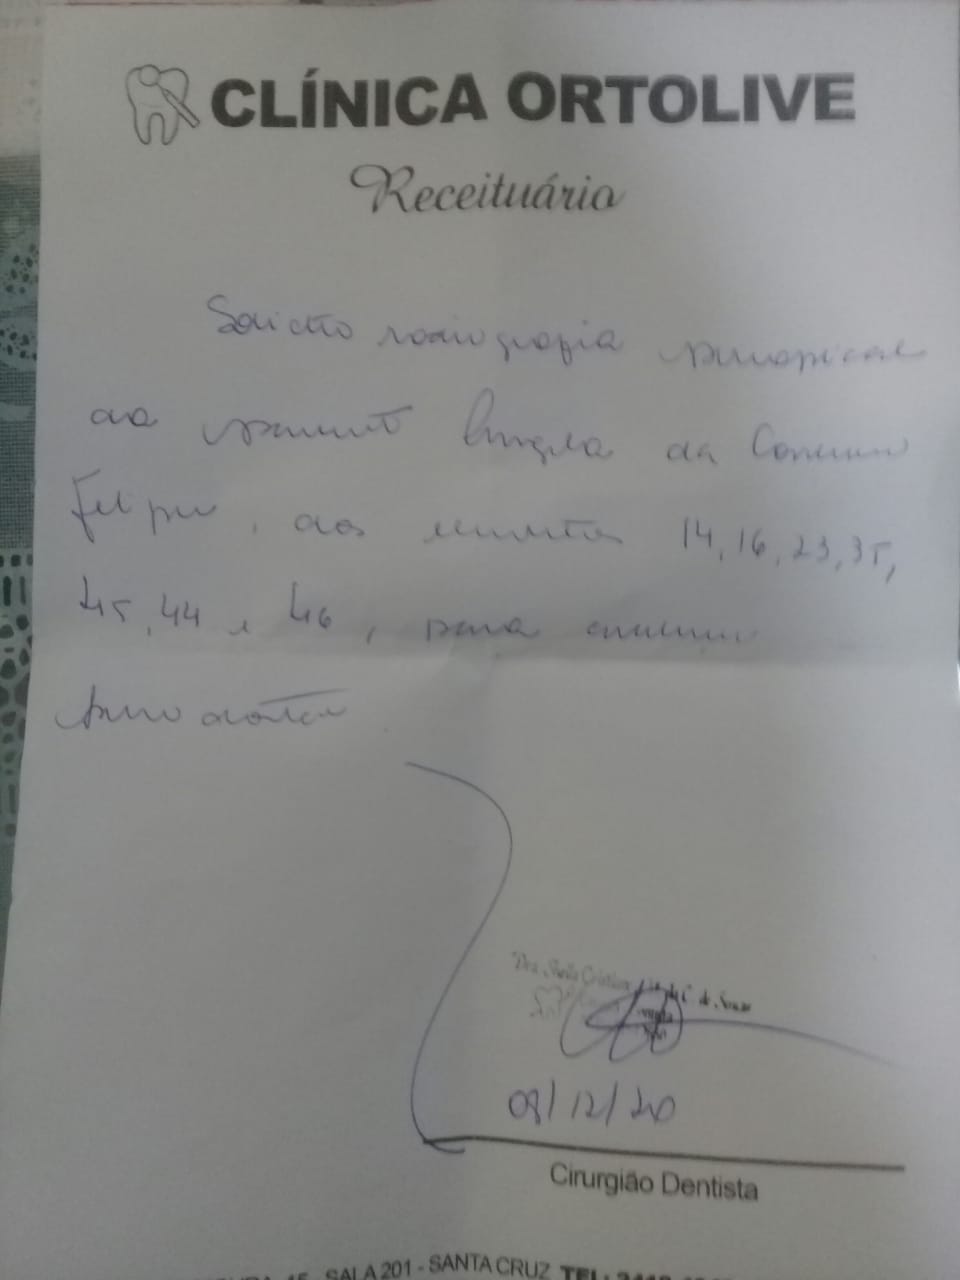 CLÍNICA ORTOLIVE
Receituário
Solicito radiografia periapical
da paciente da Conceição
Felipe, dos elementos 14, 16, 23, 35,
45, 44 e 46, para
Dra. Sheila C. de Souza
09/12/20
Cirurgião Dentista
SALA 201 - SANTA CRUZ TEL: